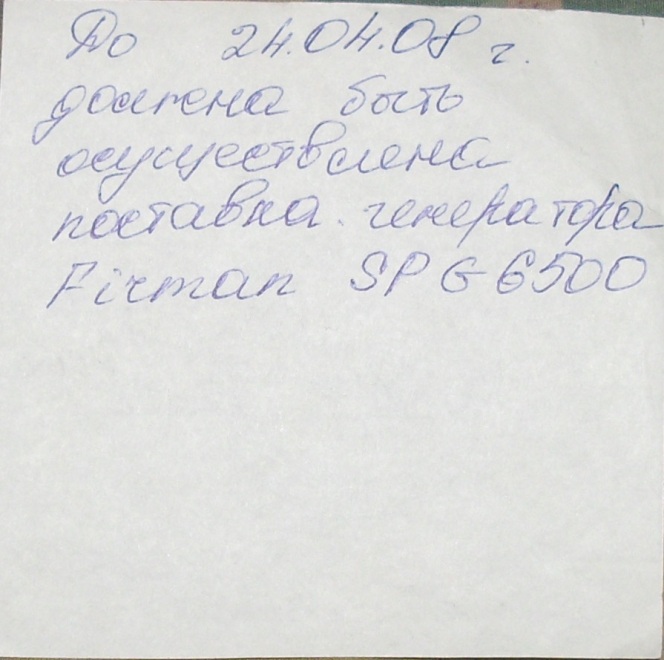 До 24.04.08 г.
должна быть
осуществлена
поставка генератора
Firman SPG 6500